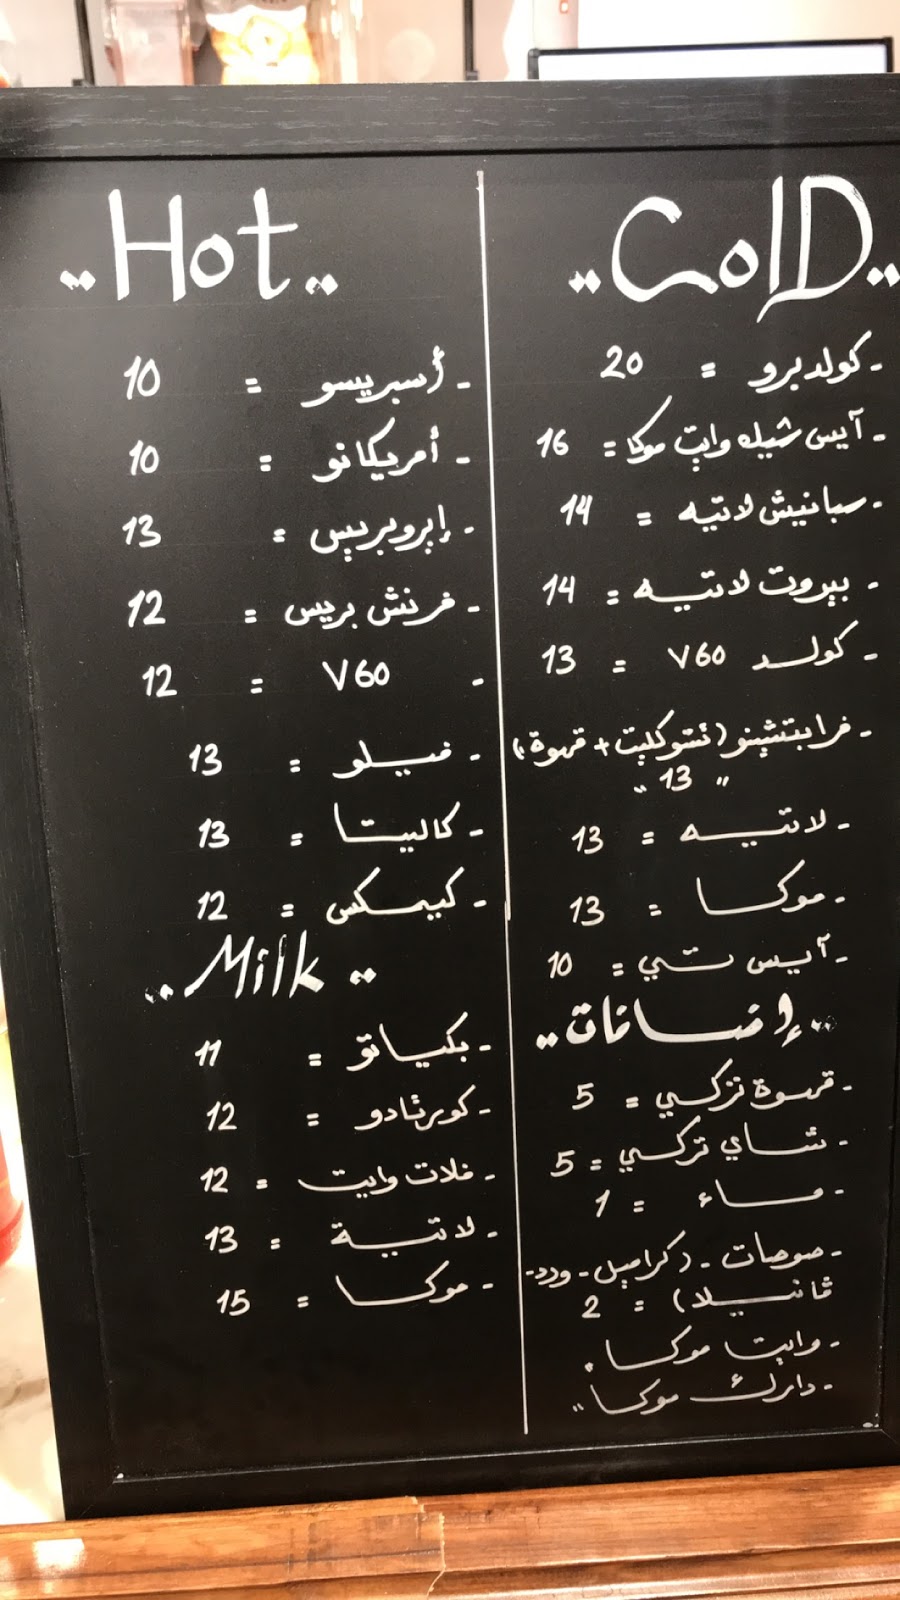 .. Hot ..
- أسبريسو = 10
- أمريكانو = 10
- إيروبريس = 13
- فرنش بريس = 12
- V60 = 12
- فيلو = 13
- كاليتا = 13
- كيمكس = 12
.. Milk ..
- بكياتو = 11
- كورتادو = 12
- فلات وايت = 12
- لاتية = 13
- موكا = 15
.. ColD ..
- كولدبرو = 20
- آيس شيك وايت موكا = 16
- سبانيش لاتيه = 14
- بيروت لاتيه = 14
- كولد V60 = 13
- فرابتشينو (تشوكليت + قهوة)
" 13 "
- لاتيه = 13
- موكا = 13
- آيس تي = 10
.. إضافات ..
- قهوة تركي = 5
- شاي تركي = 5
- ماء = 1
- صوصات - (كراميل - ورد -
ڤانيلا) = 2
- وايت موكا .
- دارك موكا "